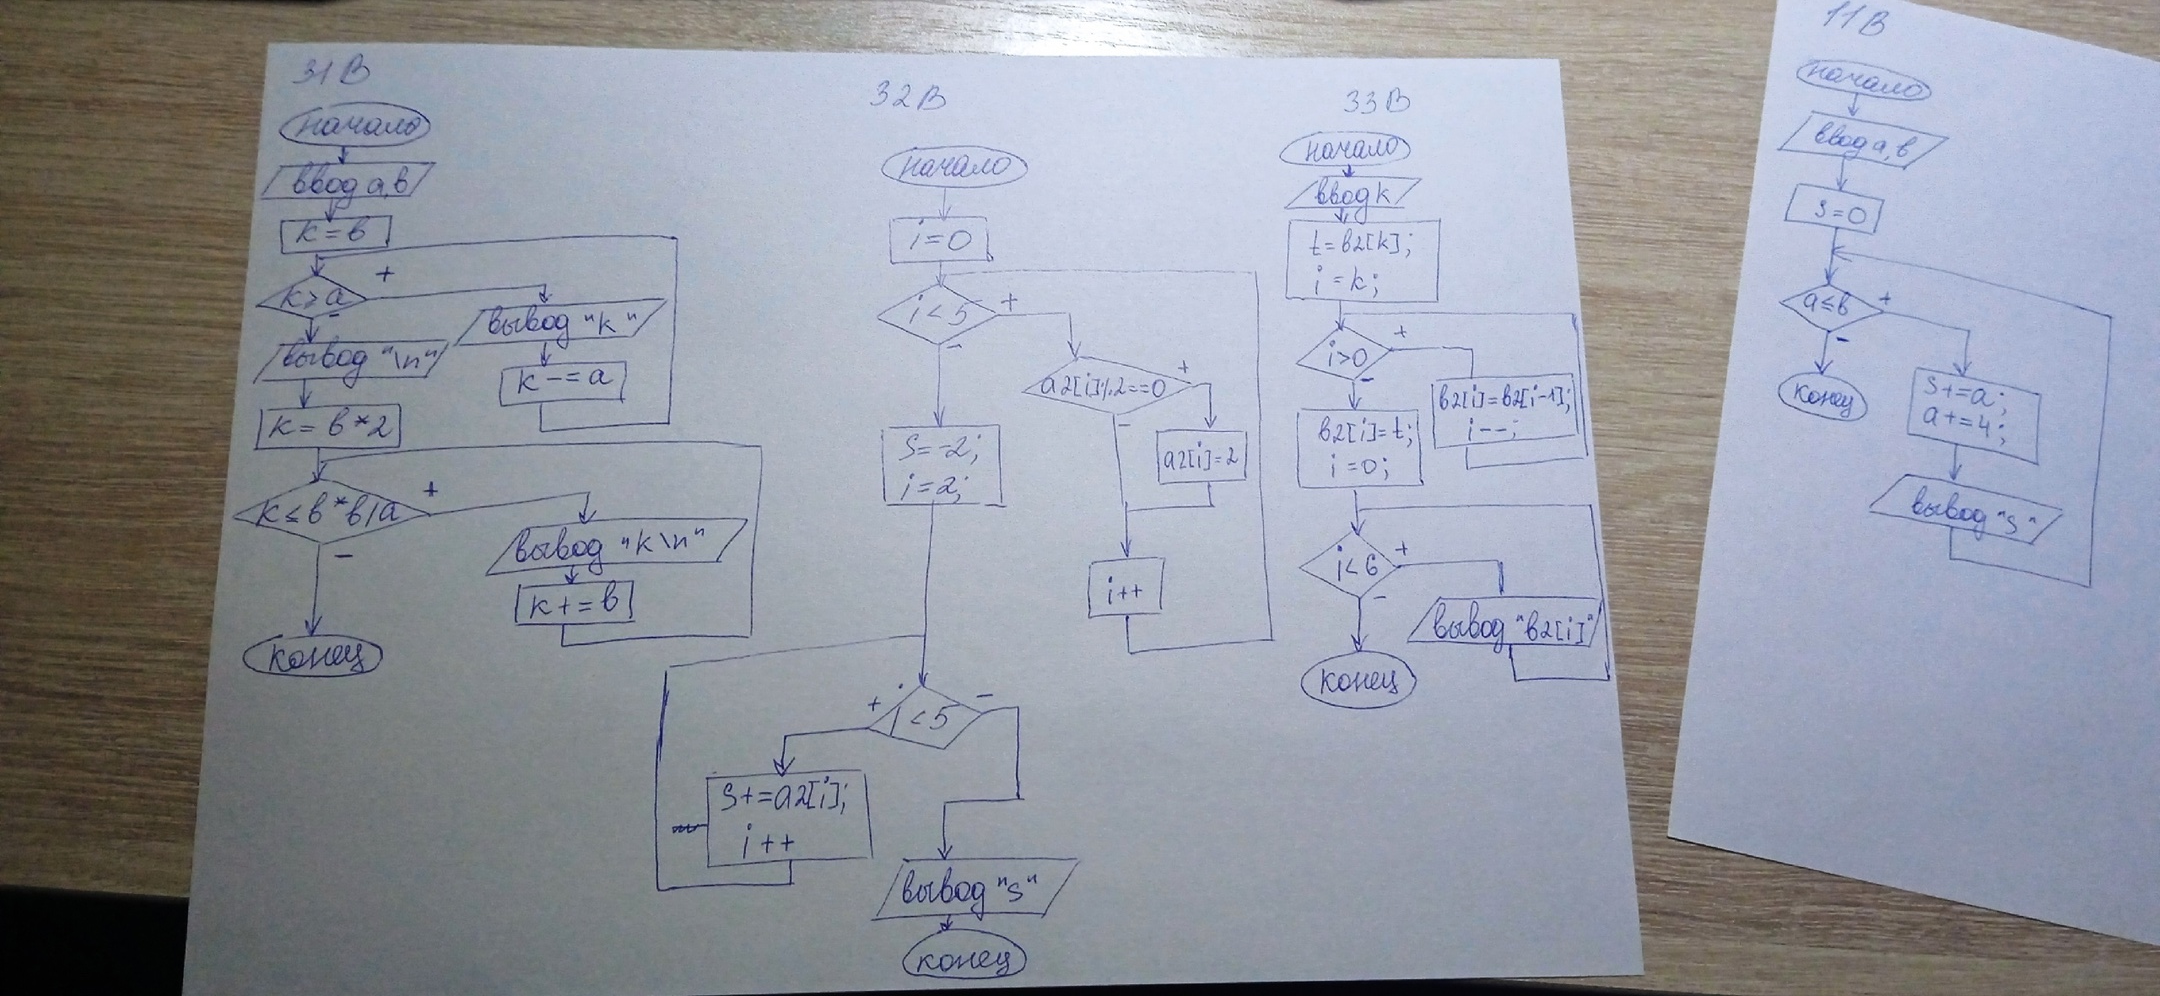 31В
начало
ввод a,в
k=в
k>a
+
-
вывод "k"
k-=a
вывод "\n"
k=в*2
k≤в*в/a
+
-
вывод "k\n"
k+=в
конец
32В
начало
i=0
i<5
+
-
a2[i]%2==0
+
-
a2[i]=2
i++
S=-2;
i=2;
i<5
+
-
S+=a2[i];
i++
вывод "S"
конец
33В
начало
ввод k
t=в2[k];
i=k;
i>0
+
-
в2[i]=в2[i-1];
i--;
в2[i]=t;
i=0;
i<6
+
-
вывод "в2[i]"
конец
11В
начало
ввод a,в
S=0
a≤в
+
-
конец
S+=a;
a+=4;
вывод "S"